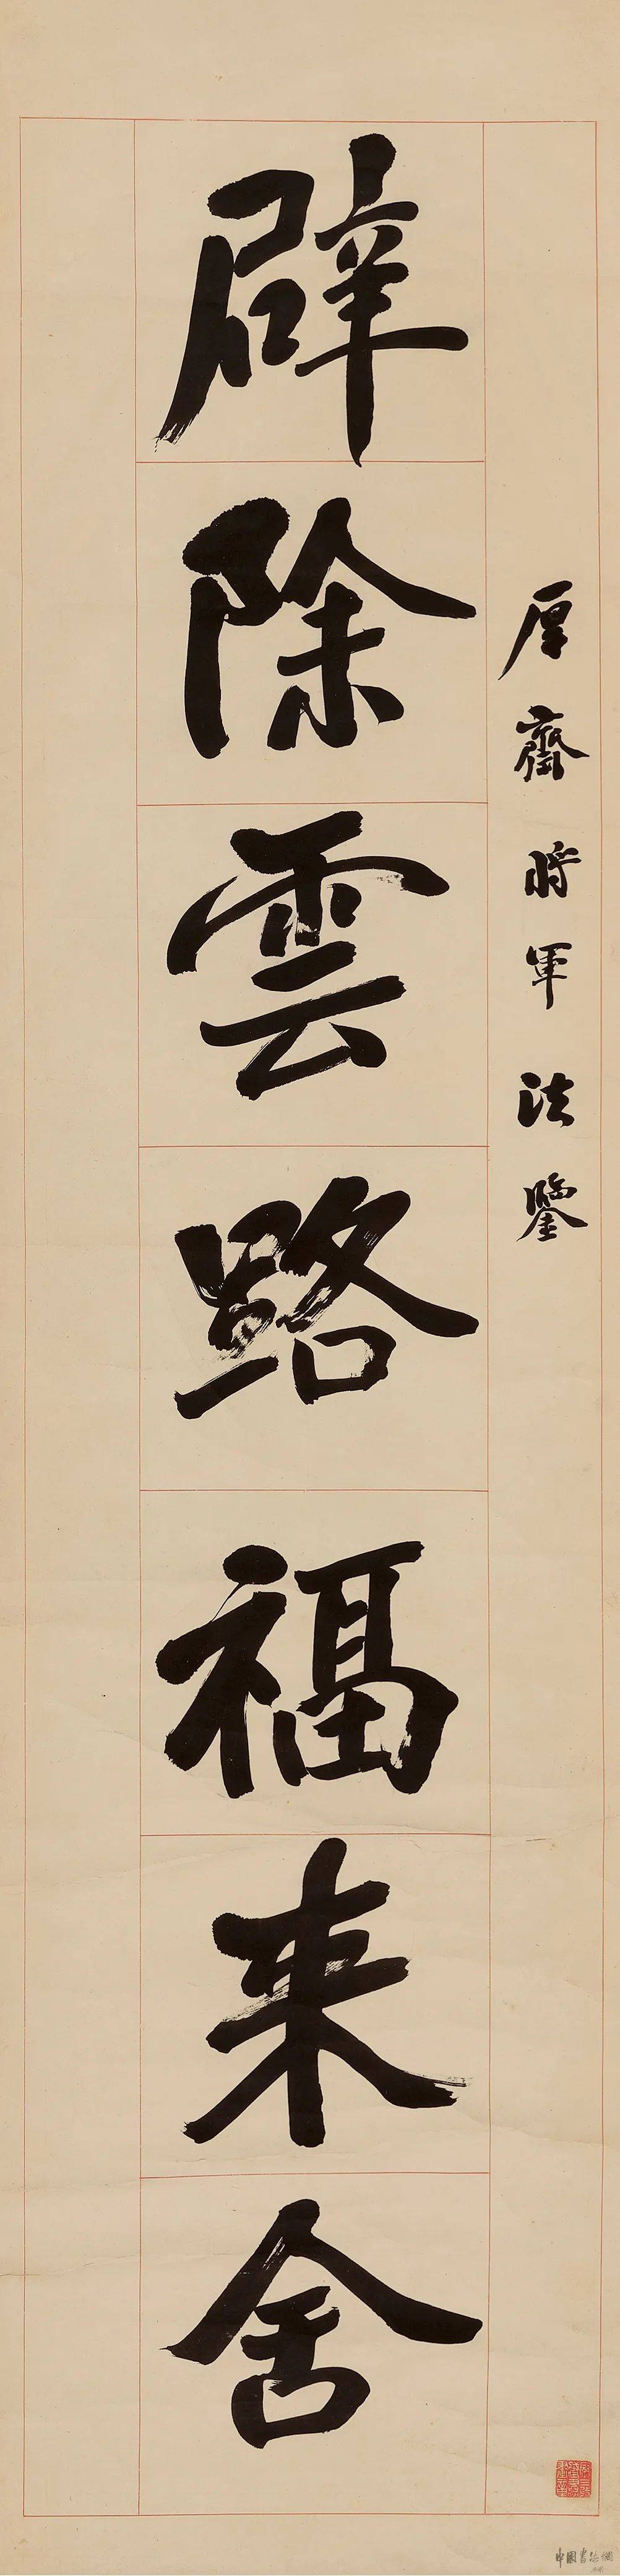 厚齋將軍法鑒
辟除雲路福来舍
中國書法網